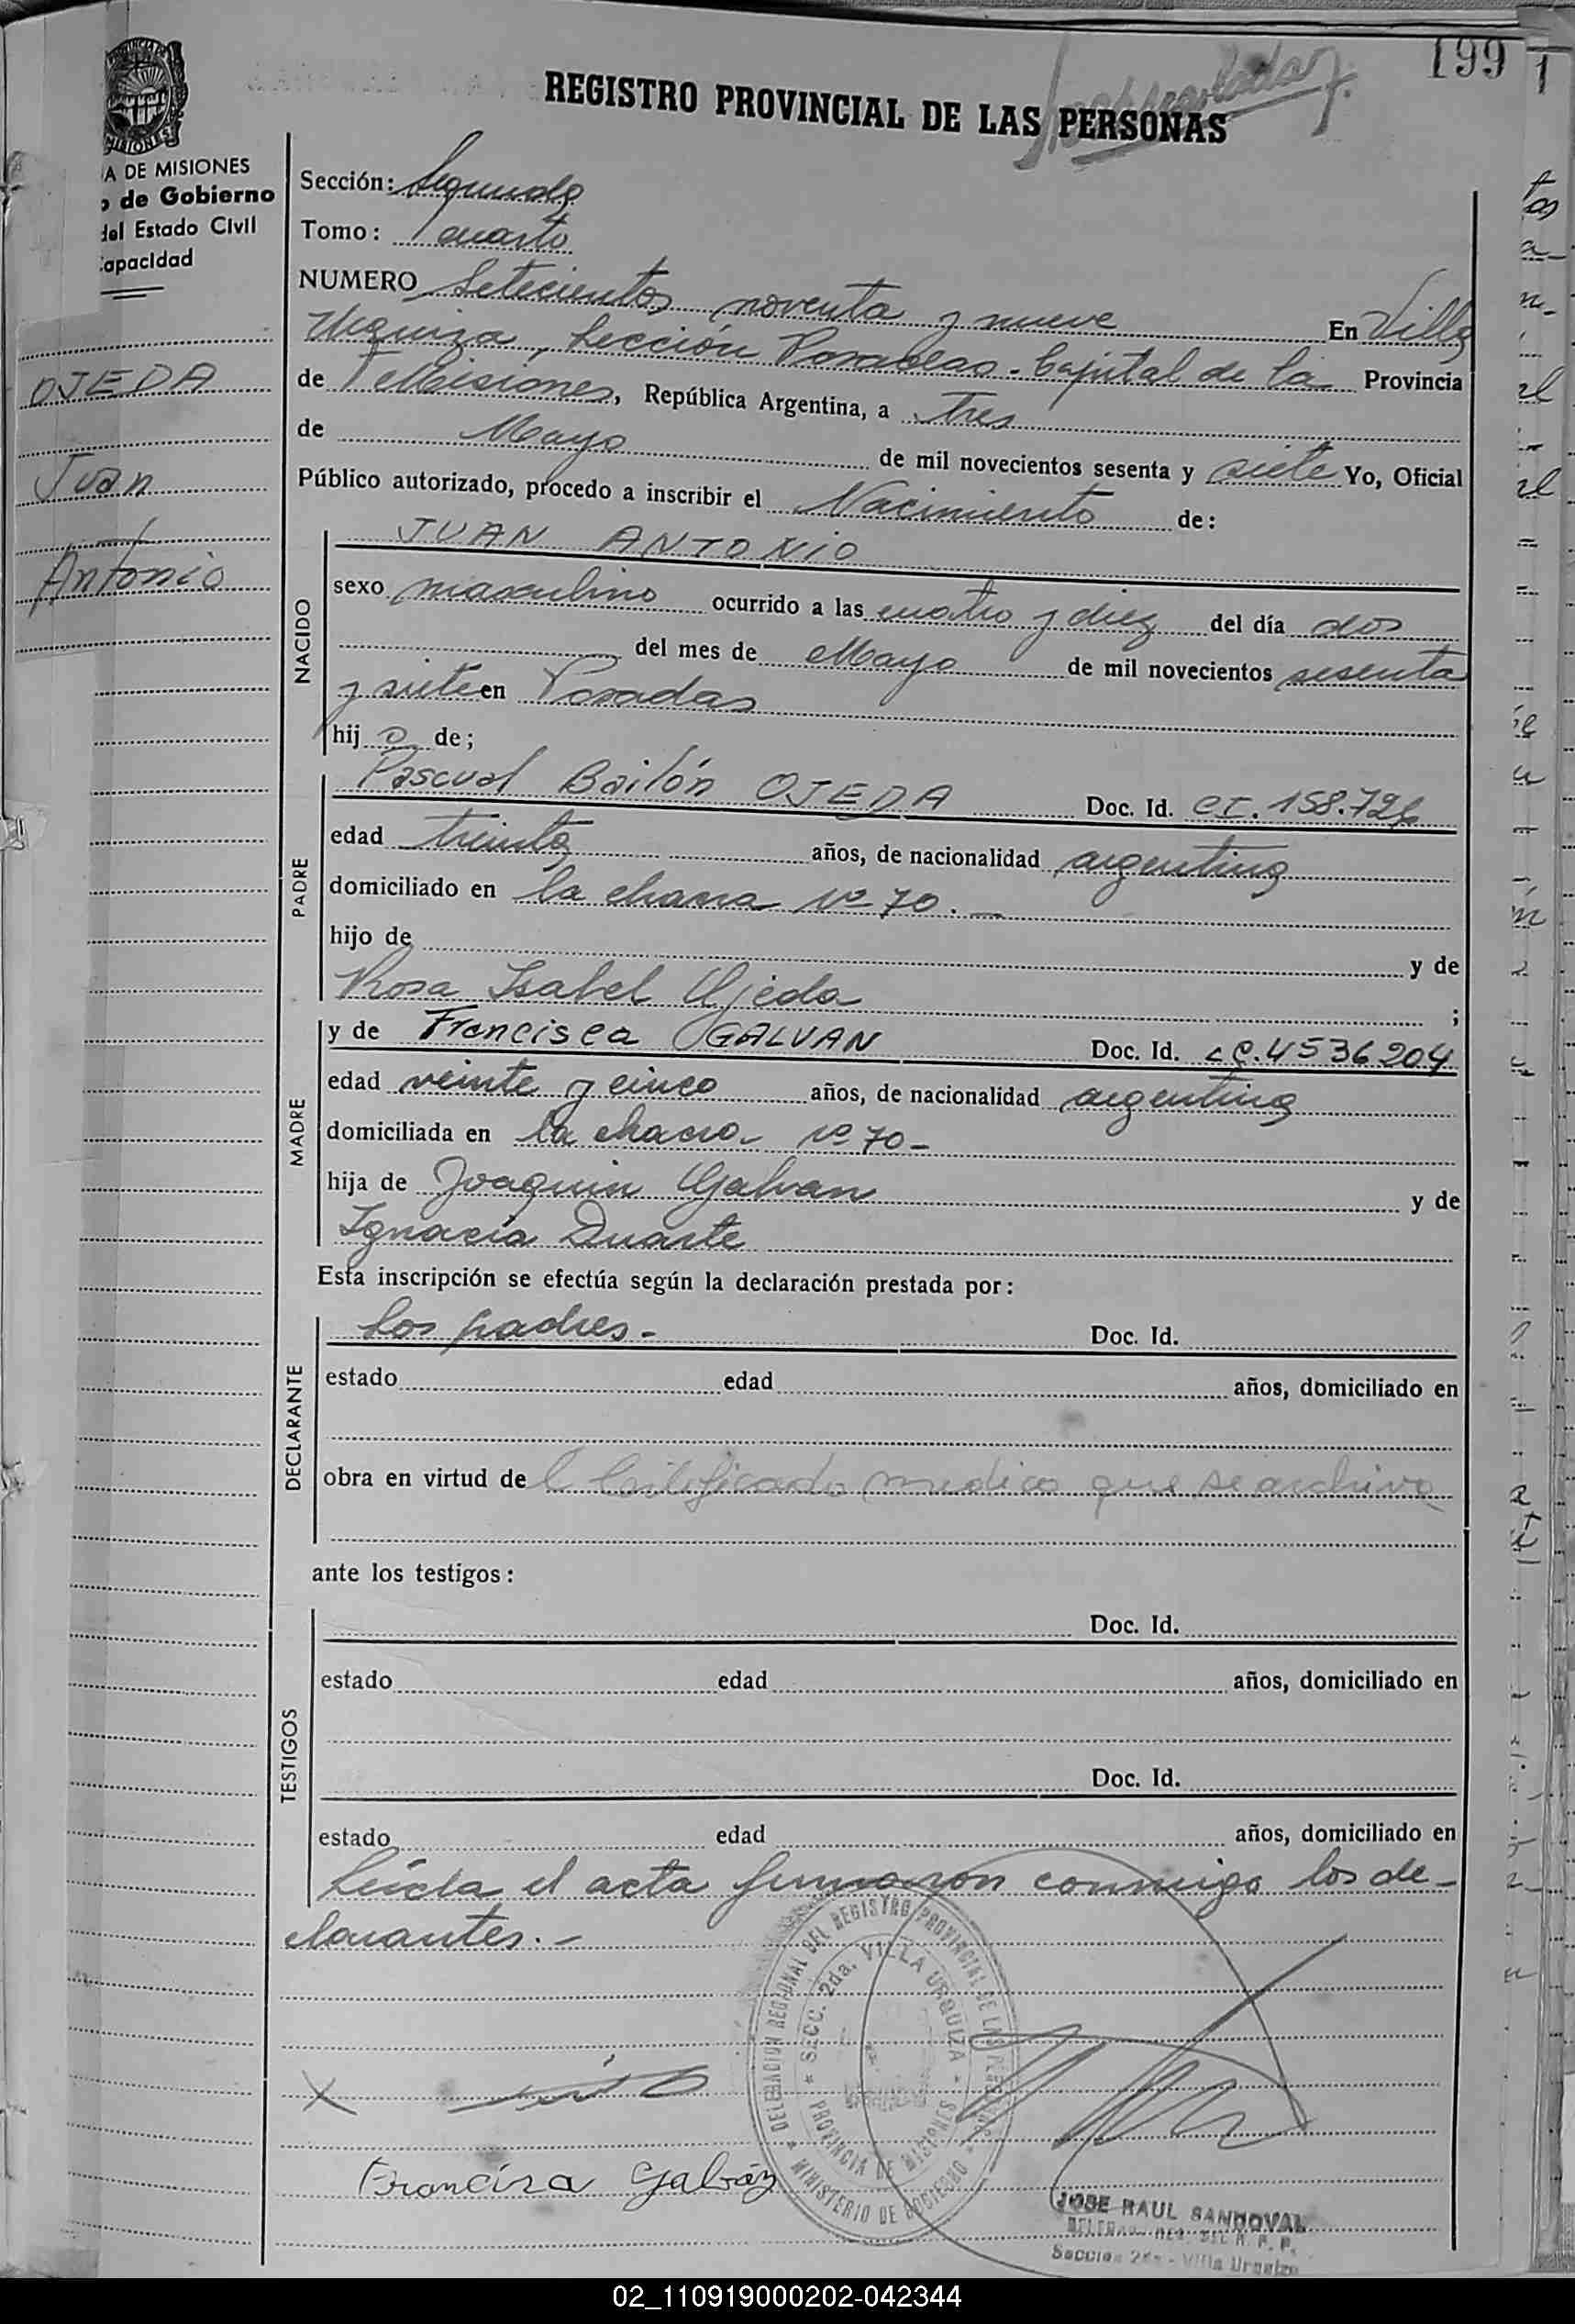 199
REGISTRO PROVINCIAL DE LAS PERSONAS
PROVINCIA DE
MISIONES
A DE MISIONES
o de Gobierno
del Estado Civil
apacidad
OJEDA
Juan
Antonio
Sección: Segunda
Tomo: cuarto
NUMERO Setecientos noventa y nueve En Villa
Urquiza, Sección Posadas - Capital de la Provincia
de Misiones, República Argentina, a tres
de Mayo de mil novecientos sesenta y siete Yo, Oficial
Público autorizado, procedo a inscribir el Nacimiento de:
NACIDO
JUAN ANTONIO
sexo masculino ocurrido a las cuatro y diez del día dos
del mes de Mayo de mil novecientos sesenta
y siete en Posadas
hij o de;
PADRE
Pascual Bailón OJEDA Doc. Id. CI. 158.726
edad treinta años, de nacionalidad argentina
domiciliado en la chacra Nº 70. —
hijo de y de
Rosa Isabel Ojeda ;
MADRE
y de Francisca GALVAN Doc. Id. LC. 4536204
edad veinte y cinco años, de nacionalidad argentina
domiciliada en la chacra Nº 70 -
hija de Joaquin Galvan y de
Ignacia Duarte
Esta inscripción se efectúa según la declaración prestada por:
DECLARANTE
los padres - Doc. Id.
estado edad años, domiciliado en
obra en virtud de l Certificado medico que se archiva
ante los testigos:
TESTIGOS
Doc. Id.
estado edad años, domiciliado en
Doc. Id.
estado edad años, domiciliado en
Leída el acta firmaron conmigo los de-
clarantes. -
DELEGACION REGIONAL DEL REGISTRO PROVINCIAL DE LAS PERSONAS
* SECC. 2da. VILLA URQUIZA *
PROVINCIA DE MISIONES
* MINISTERIO DE GOBIERNO *
X
Francisca Galván
JOSE RAUL SANDOVAL
DELEGADO REG. DEL R. P. P.
Sección 2da - Villa Urquiza
02_110919000202-042344